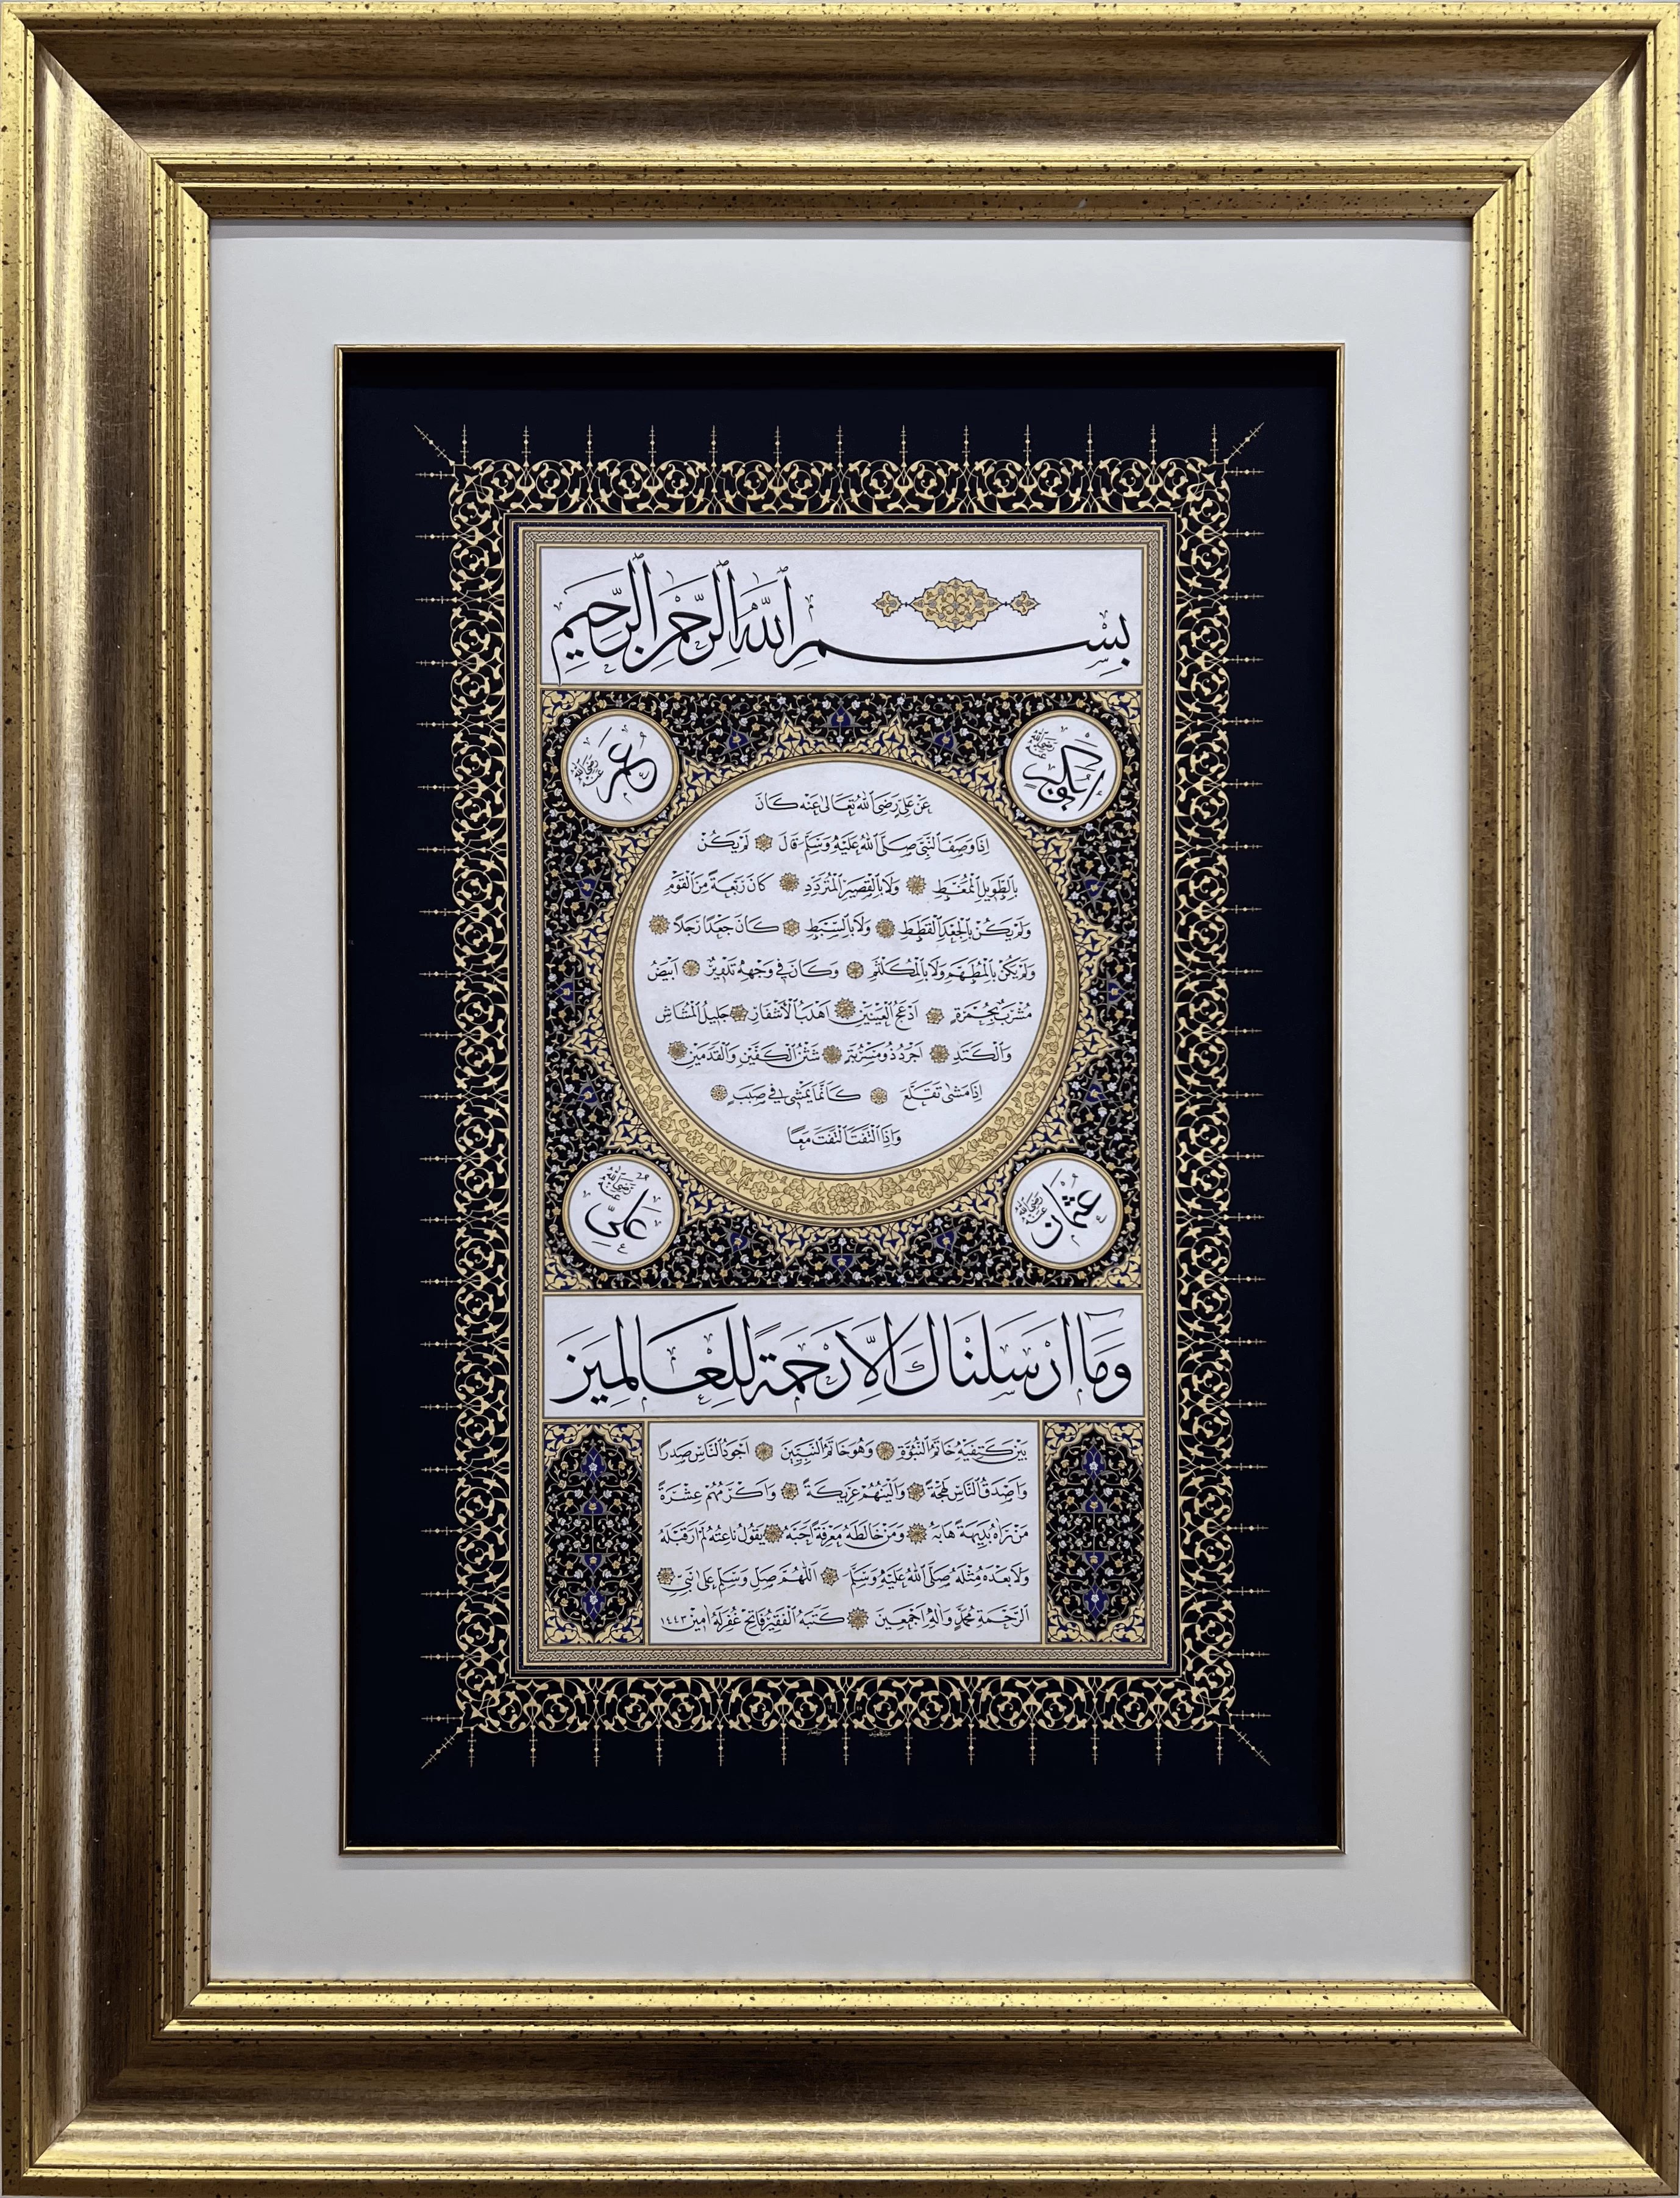 بِسْمِ اللهِ الرَّحْمٰنِ الرَّحِيمِ
ابوبكر رضي الله عنه
عمر رضي الله عنه
عَنْ عَلِيٍّ رَضِيَ اللهُ تَعَالٰى عَنْهُ كَانَ
اِذَا وَصَفَ النَّبِيَّ صَلَّى اللهُ عَلَيْهِ وَسَلَّمَ قَالَ لَمْ يَكُنْ
بِالطَّوِيلِ الْمُمَّغِطِ وَلَا بِالْقَصِيرِ الْمُتَرَدِّدِ كَانَ رَبْعَةً مِنَ الْقَوْمِ
وَلَمْ يَكُنْ بِالْجَعْدِ الْقَطَطِ وَلَا بِالسَّبْطِ كَانَ جَعْدًا رَجِلًا
وَلَمْ يَكُنْ بِالْمُطَهَّمِ وَلَا بِالْمُكَلْثَمِ وَكَانَ فِي وَجْهِهِ تَدْوِيرٌ اَبْيَضُ
مُشْرَبٌ بِحُمْرَةٍ اَدْعَجُ الْعَيْنَيْنِ اَهْدَبُ الْاَشْفَارِ جَلِيلُ الْمُشَاشِ
وَالْكَتَدِ اَجْرَدُ ذُو مَسْرُبَةٍ شَثْنُ الْكَفَّيْنِ وَالْقَدَمَيْنِ
اِذَا مَشٰى تَقَلَّعَ كَاَنَّمَا يَمْشِي فِي صَبَبٍ
وَاِذَا الْتَفَتَ الْتَفَتَ مَعًا
عثمان رضي الله عنه
علي رضي الله عنه
وَمَا اَرْسَلْنَاكَ اِلَّا رَحْمَةً لِلْعَالَمِينَ
بَيْنَ كَتِفَيْهِ خَاتَمُ النُّبُوَّةِ وَهُوَ خَاتَمُ النَّبِيِّينَ اَجْوَدُ النَّاسِ صَدْرًا
وَاَصْدَقُ النَّاسِ لَهْجَةً وَاَلْيَنُهُمْ عَرِيكَةً وَاَكْرَمُهُمْ عِشْرَةً
مَنْ رَاٰهُ بَدِيهَةً هَابَهُ وَمَنْ خَالَطَهُ مَعْرِفَةً اَحَبَّهُ يَقُولُ نَاعِتُهُ لَمْ اَرَ قَبْلَهُ
وَلَا بَعْدَهُ مِثْلَهُ صَلَّى اللهُ عَلَيْهِ وَسَلَّمَ اَللّٰهُمَّ صَلِّ وَسَلِّمْ عَلٰى نَبِيِّ
الرَّحْمَةِ مُحَمَّدٍ وَاٰلِهِ اَجْمَعِينَ كَتَبَهُ الْفَقِيرُ فَاتِحْ غُفِرَ لَهُ اٰمِينْ ١٤٤٣